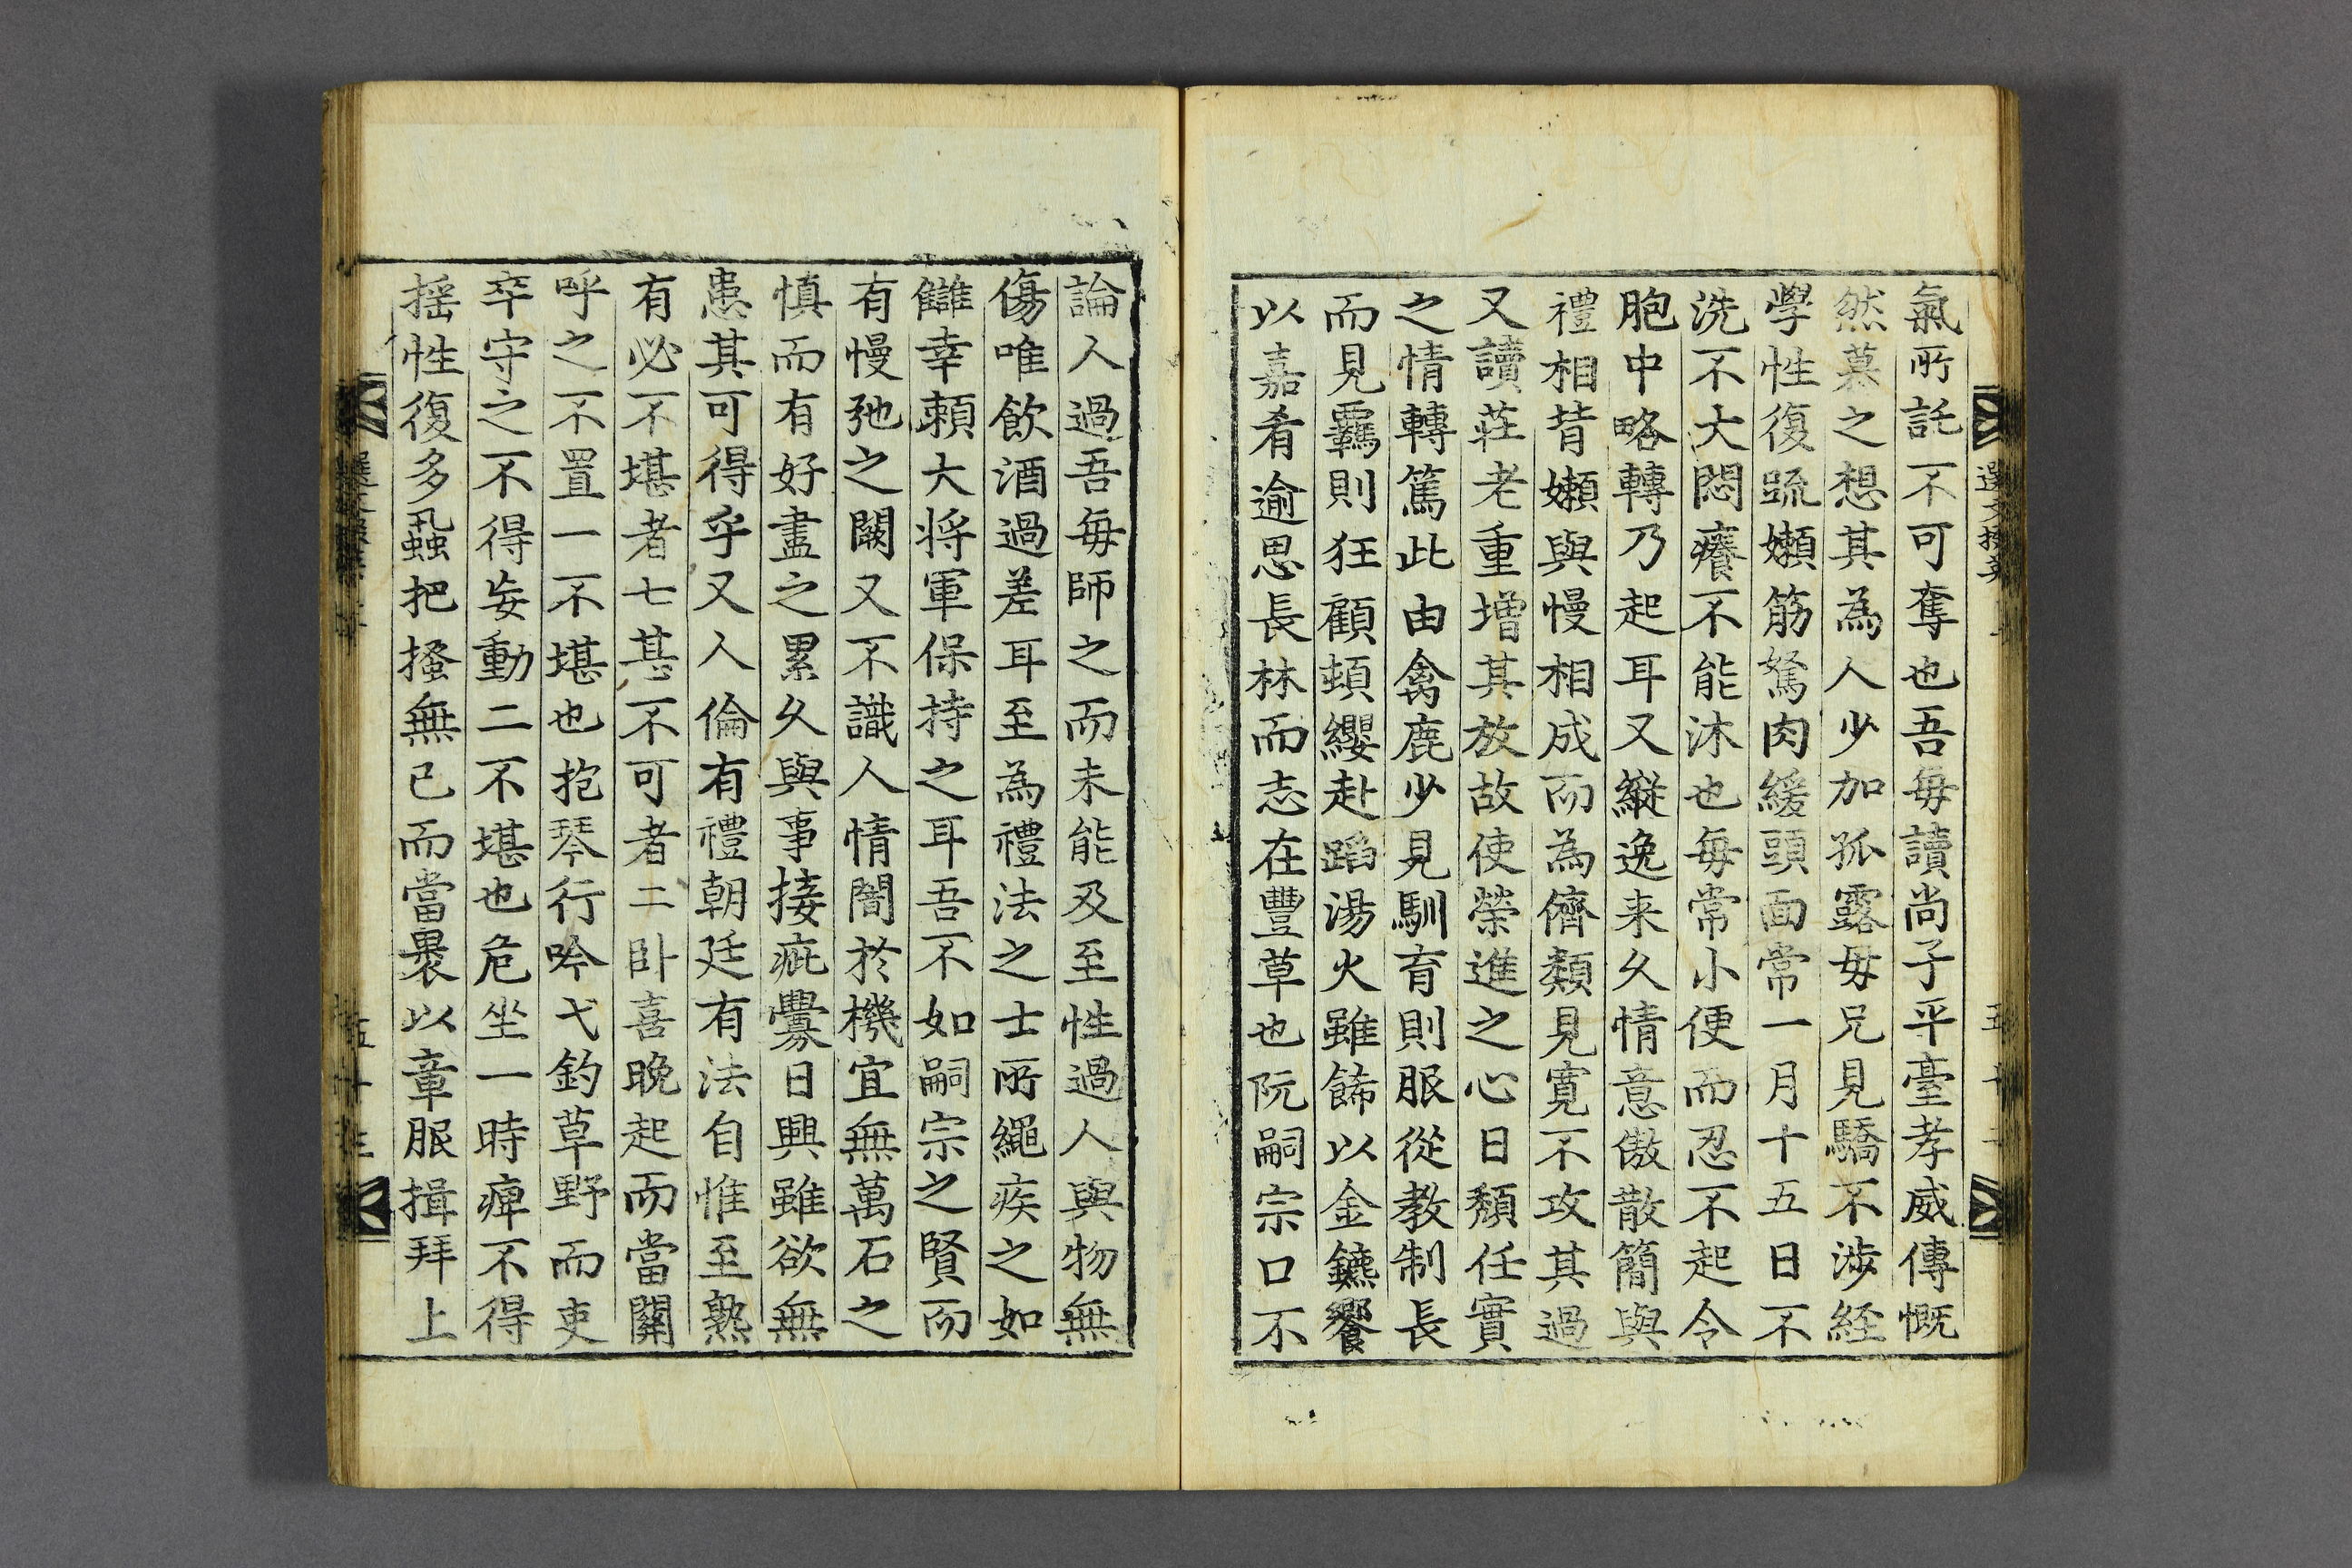 氣所託不可奪也吾每讀尚子平臺孝威傳慨
然慕之想其為人少加孤露母兄見驕不涉経
學性復䟽嬾筋駑肉緩頭面常一月十五日不
洗不大悶癢不能沐也每常小便而忍不起令
胞中略轉乃起耳又縱逸来久情意傲散簡與
禮相背嬾與慢相成而為儕類見寬不攻其過
又讀莊老重增其放故使榮進之心日頹任實
之情轉篤此由禽鹿少見馴育則服從教制長
而見羈則狂顧頓纓赴蹈湯火雖餙以金鑣饗
以嘉肴逾思長林而志在豐草也阮嗣宗口不
論人過吾每師之而未能及至性過人與物無
傷唯飲酒過差耳至為禮法之士所繩疾之如
讎幸賴大将軍保持之耳吾不如嗣宗之賢而
有慢弛之闕又不識人情闇於機宜無萬石之
慎而有好盡之累久與事接疵釁日興雖欲無
患其可得乎又人倫有禮朝廷有法自惟至熟
有必不堪者七甚不可者二卧喜晚起而當關
呼之不置一不堪也抱琴行吟弋釣草野而吏
卒守之不得妄動二不堪也危坐一時痺不得
揺性復多蝨把搔無已而當褁以章服揖拜上